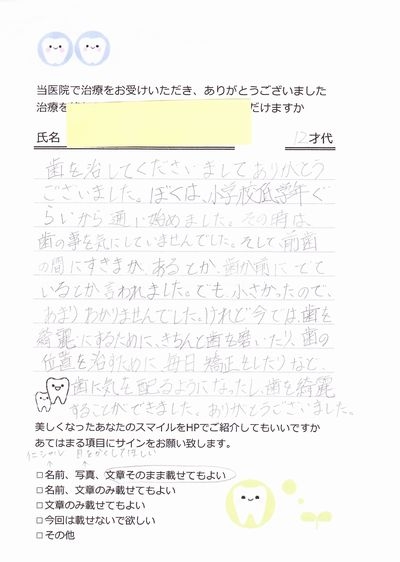 当医院で治療をお受けいただき、ありがとうございました
治療を だけますか
氏名 12才代
歯を治してくださいましてありがとう
ございました。ぼくは、小学校低学年ぐ
らいから通い始めました。その時は
歯の事を気にしていませんでした。そして、前歯
の間にすきまが、あるとか、歯が前に でて
いるとか言われました。でも、小さかったので、
あまりわかりませんでした。けれど今では歯を
綺麗にするために、きちんと歯を磨いたり、歯の
位置を治すために、毎日矯正をしたりなど、
歯に気を配るようになったし、歯を綺麗
することができました。ありがとうございました。
美しくなったあなたのスマイルをHPでご紹介してもいいですか
あてはまる項目にサインをお願い致します。
イニシャル 目をかくしてほしい
□名前、写真、文章そのまま載せてもよい
□名前、文章のみ載せてもよい
□文章のみ載せてもよい
□今回は載せないで欲しい
□その他